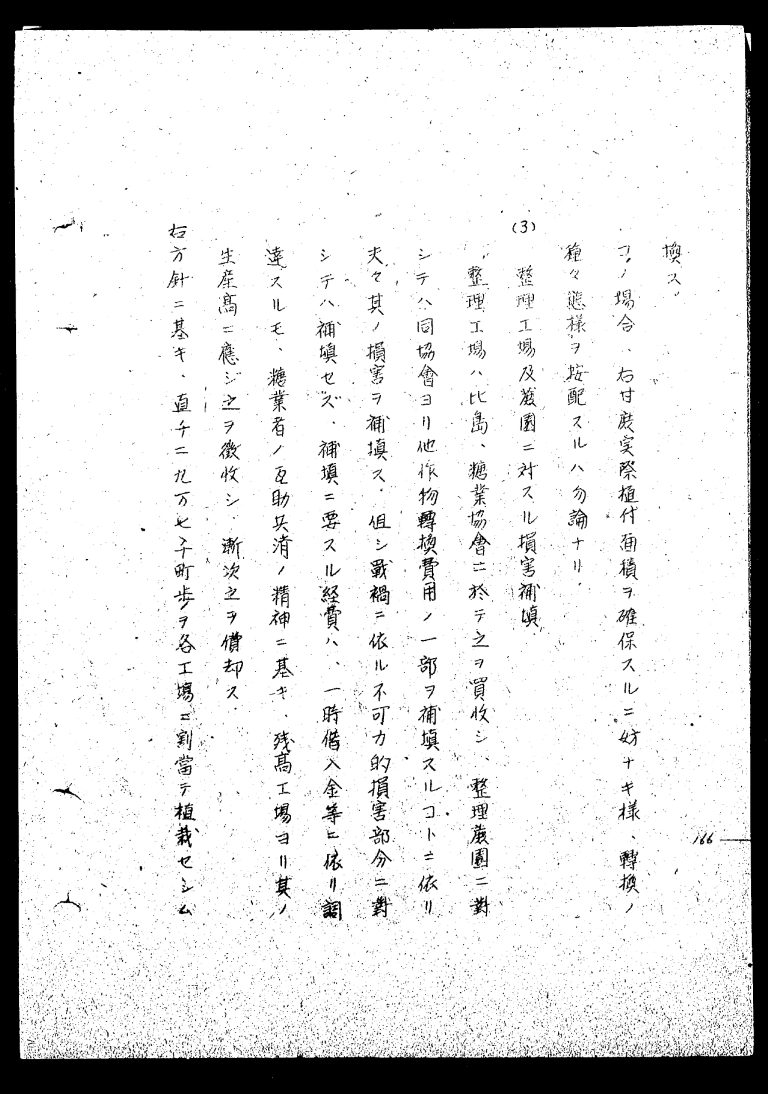 換ス。
コノ場合、右甘蔗実際植付面積ヲ確保スルニ妨ナキ様、轉換ノ
種々態様ヲ按配スルハ勿論ナリ。
(3) 整理工場及蔗園ニ対スル損害補填
整理工場ハ比島、糖業協會ニ於テ之ヲ買收シ、整理蔗園ニ對
シテハ同協會ヨリ他作物轉換費用ノ一部ヲ補填スルコトニ依リ
夫々其ノ損害ヲ補填ス。但シ戰禍ニ依ル不可力的損害部分ニ對
シテハ補填セズ、補填ニ要スル経費ハ、一時借入金等ニ依リ調
達スルモ、糖業者ノ互助共済ノ精神ニ基キ、残高工場ヨリ其ノ
生産高ニ應ジ之ヲ徴收シ、漸次之ヲ償却ス。
右方針ニ基キ、直チニ九万七千町歩ヲ各工場ニ割當テ植栽セシム
166